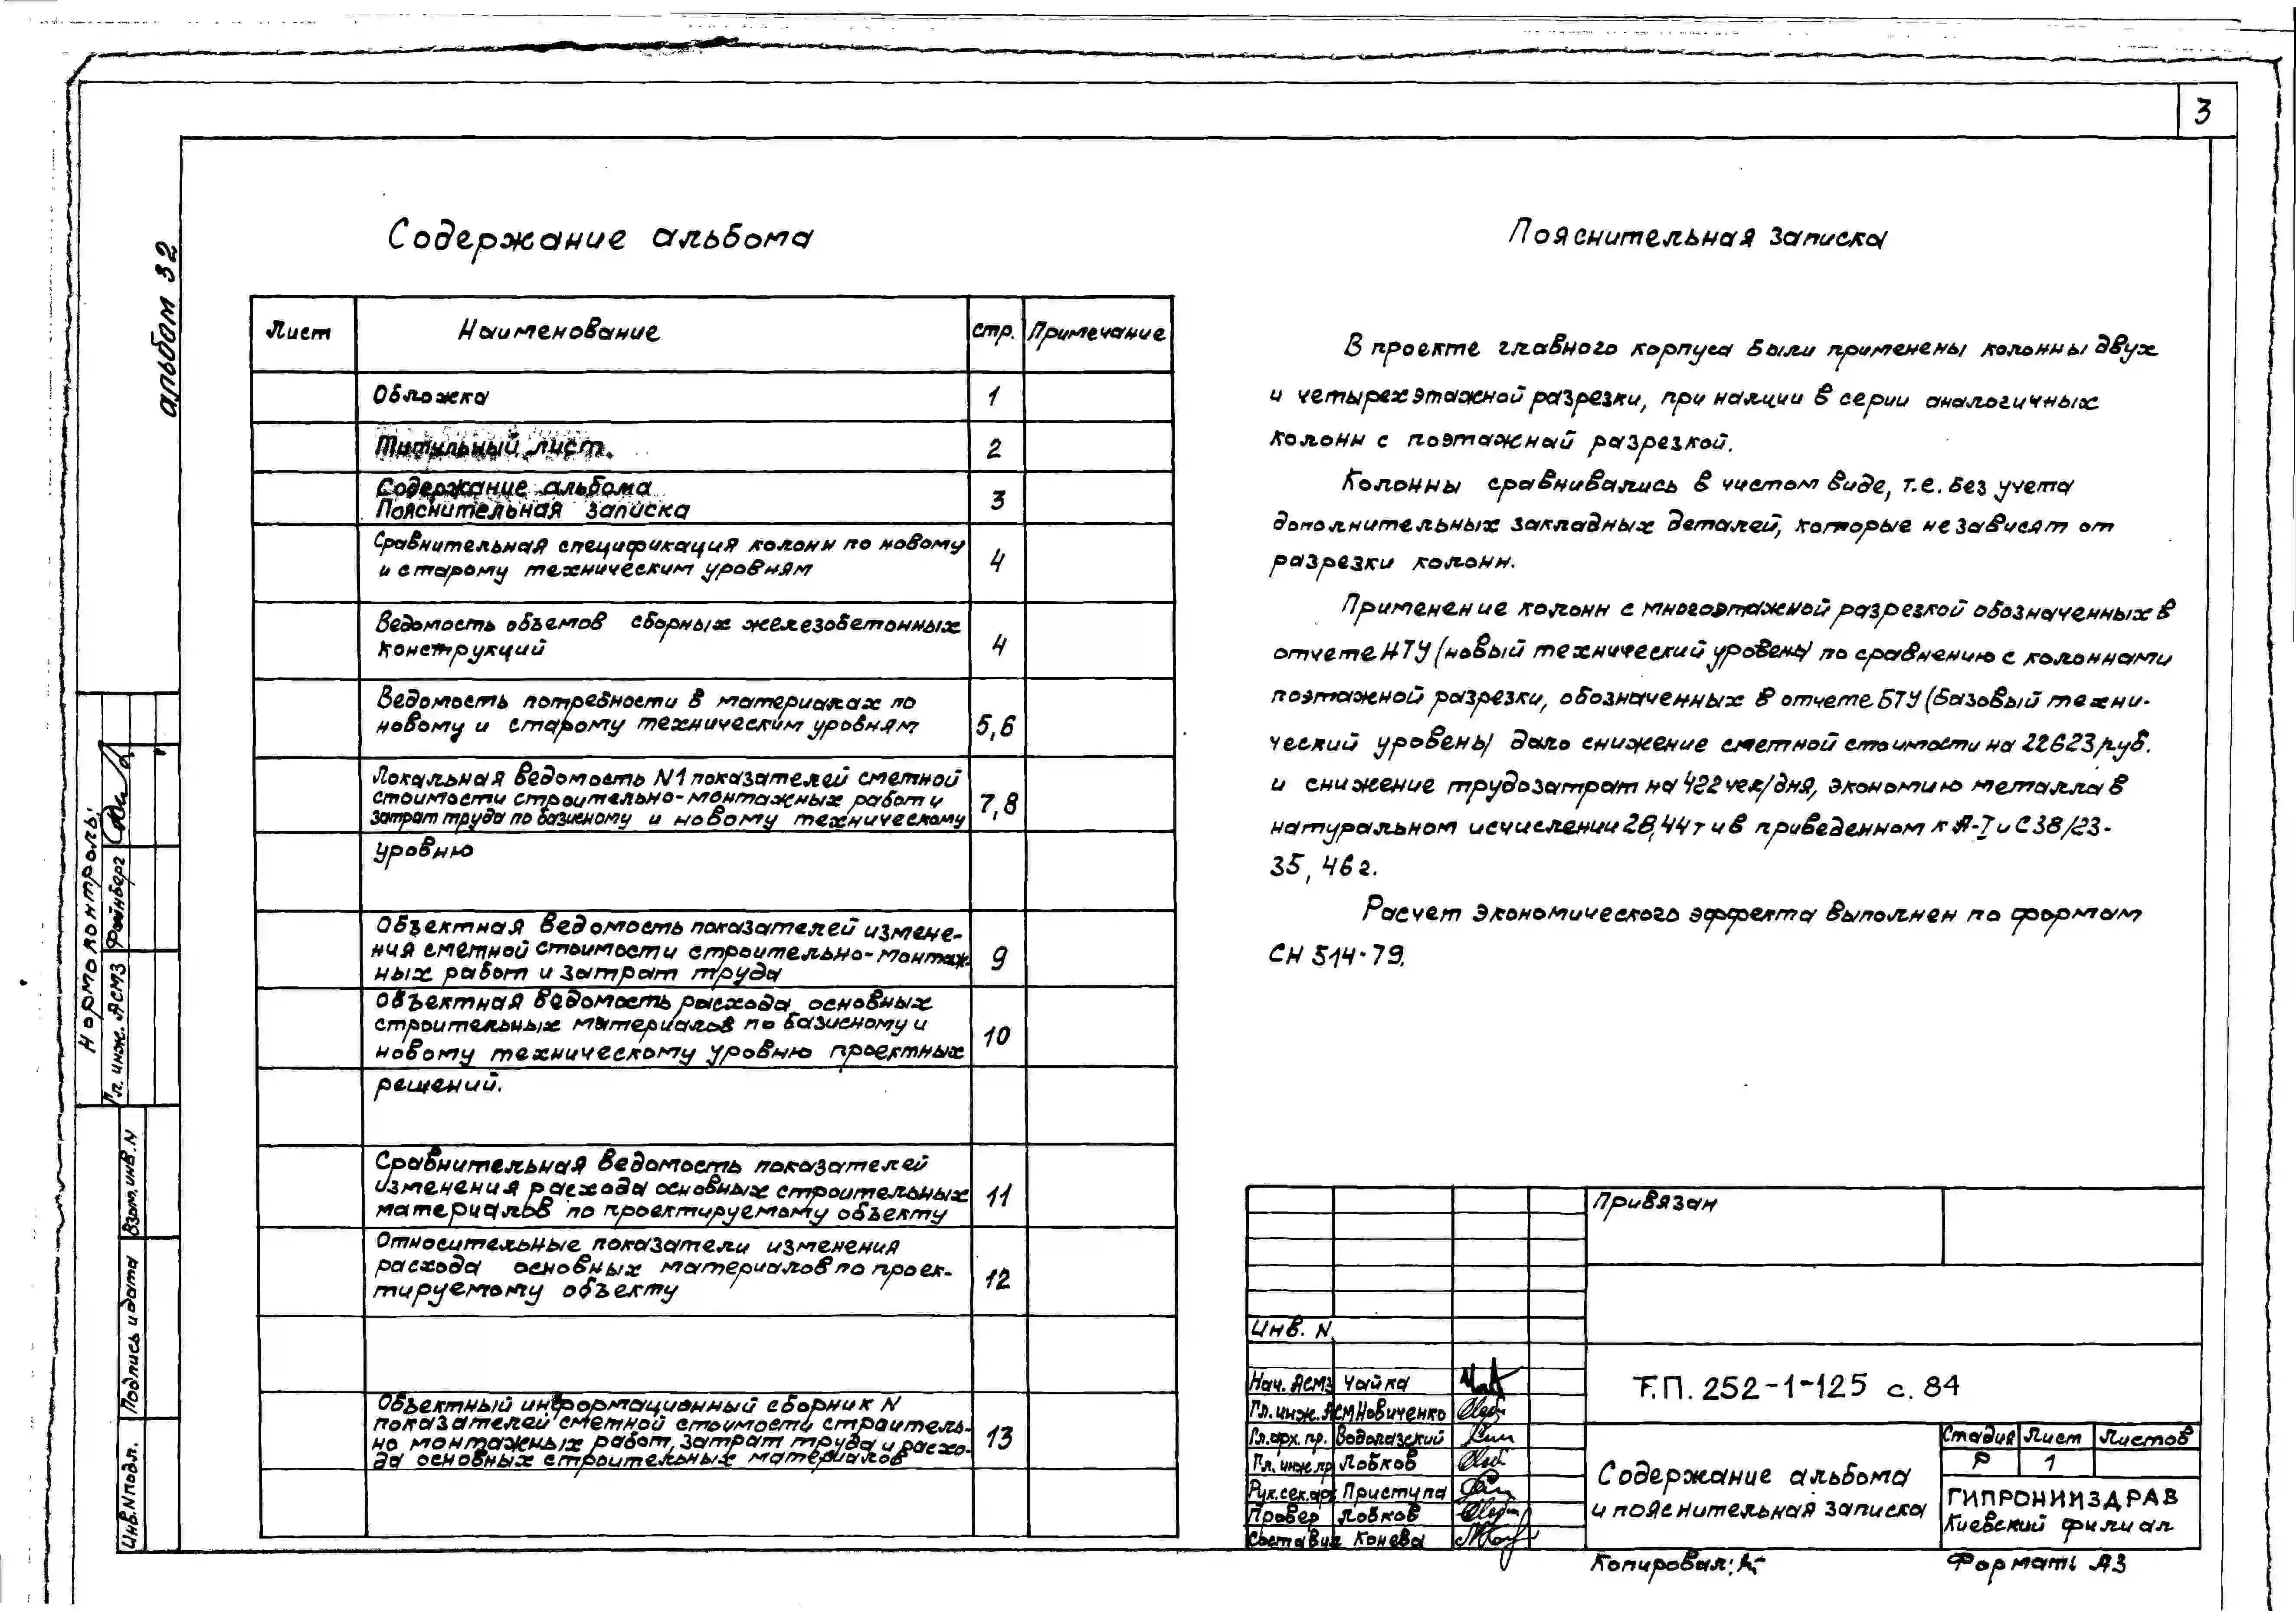 3
альбом 32
Содержание альбома
Лист Наименование стр. Примечание
Обложка 1
Титульный лист. 2
Содержание альбома
Пояснительная записка 3
Сравнительная спецификация колонн по новому
и старому техническим уровням 4
Ведомость объемов сборных железобетонных
конструкций 4
Ведомость потребности в материалах по
новому и старому техническим уровням 5,6
Локальная ведомость N1 показателей сметной
стоимости строительно-монтажных работ и
затрат труда по базисному и новому техническому 7,8
уровню
Объектная ведомость показателей измене-
ния сметной стоимости строительно-монтаж-
ных работ и затрат труда 9
Объектная ведомость расхода основных
строительных материалов по базисному и
новому техническому уровню проектных 10
решений.
Сравнительная ведомость показателей
изменения расхода основных строительных
материалов по проектируемому объекту 11
Относительные показатели изменения
расхода основных материалов по проек-
тируемому объекту 12
Объектный информационный сборник N
показателей сметной стоимости строитель-
но монтажных работ, затрат труда и расхо-
да основных строительных материалов 13
Пояснительная записка
В проекте главного корпуса были применены колонны двух
и четырехэтажной разрезки, при налции в серии аналогичных
колонн с поэтажнай разрезкой.
Колонны сравнивались в чистом виде, т.е. без учета
дополнительных закладных деталей, которые не зависят от
разрезки колонн.
Применение колонн с многоэтажной разрезкой обозначенных в
отчете НТУ (новый технический уровень) по сравнению с колоннами
поэтажной разрезки, обозначенных в отчете БТУ (базовый техни-
ческий уровень) дало снижение сметной стоимости на 22623 руб.
и снижение трудозатрат на 422 чел/дня, экономию металла в
натуральном исчислении 28,44 т и в приведенном к А-I и С38/23-
35,46 г.
Расчет экономического эффекта выполнен по формам
СН 514-79.
Нормоконтроль:
Гл. инж. АСМЗ Файнберг
Взам. инв. N
Подпись и дата
Инв. N подл.
Привязан
Инв. N
Нач. АСМЗ Чайка
Гл. инж. АСМ Новиченко
Гл. арх. пр. Водолазский
Гл. инж. пр Лобков
Рук. сек. арх Приступа
Провер Лобков
Составил Конева
Т.П. 252-1-125 с. 84
Содержание альбома
и пояснительная записка
Стадия Лист Листов
Р 1
ГИПРОНИИЗДРАВ
Киевский филиал
Копировал:
Формат: А3